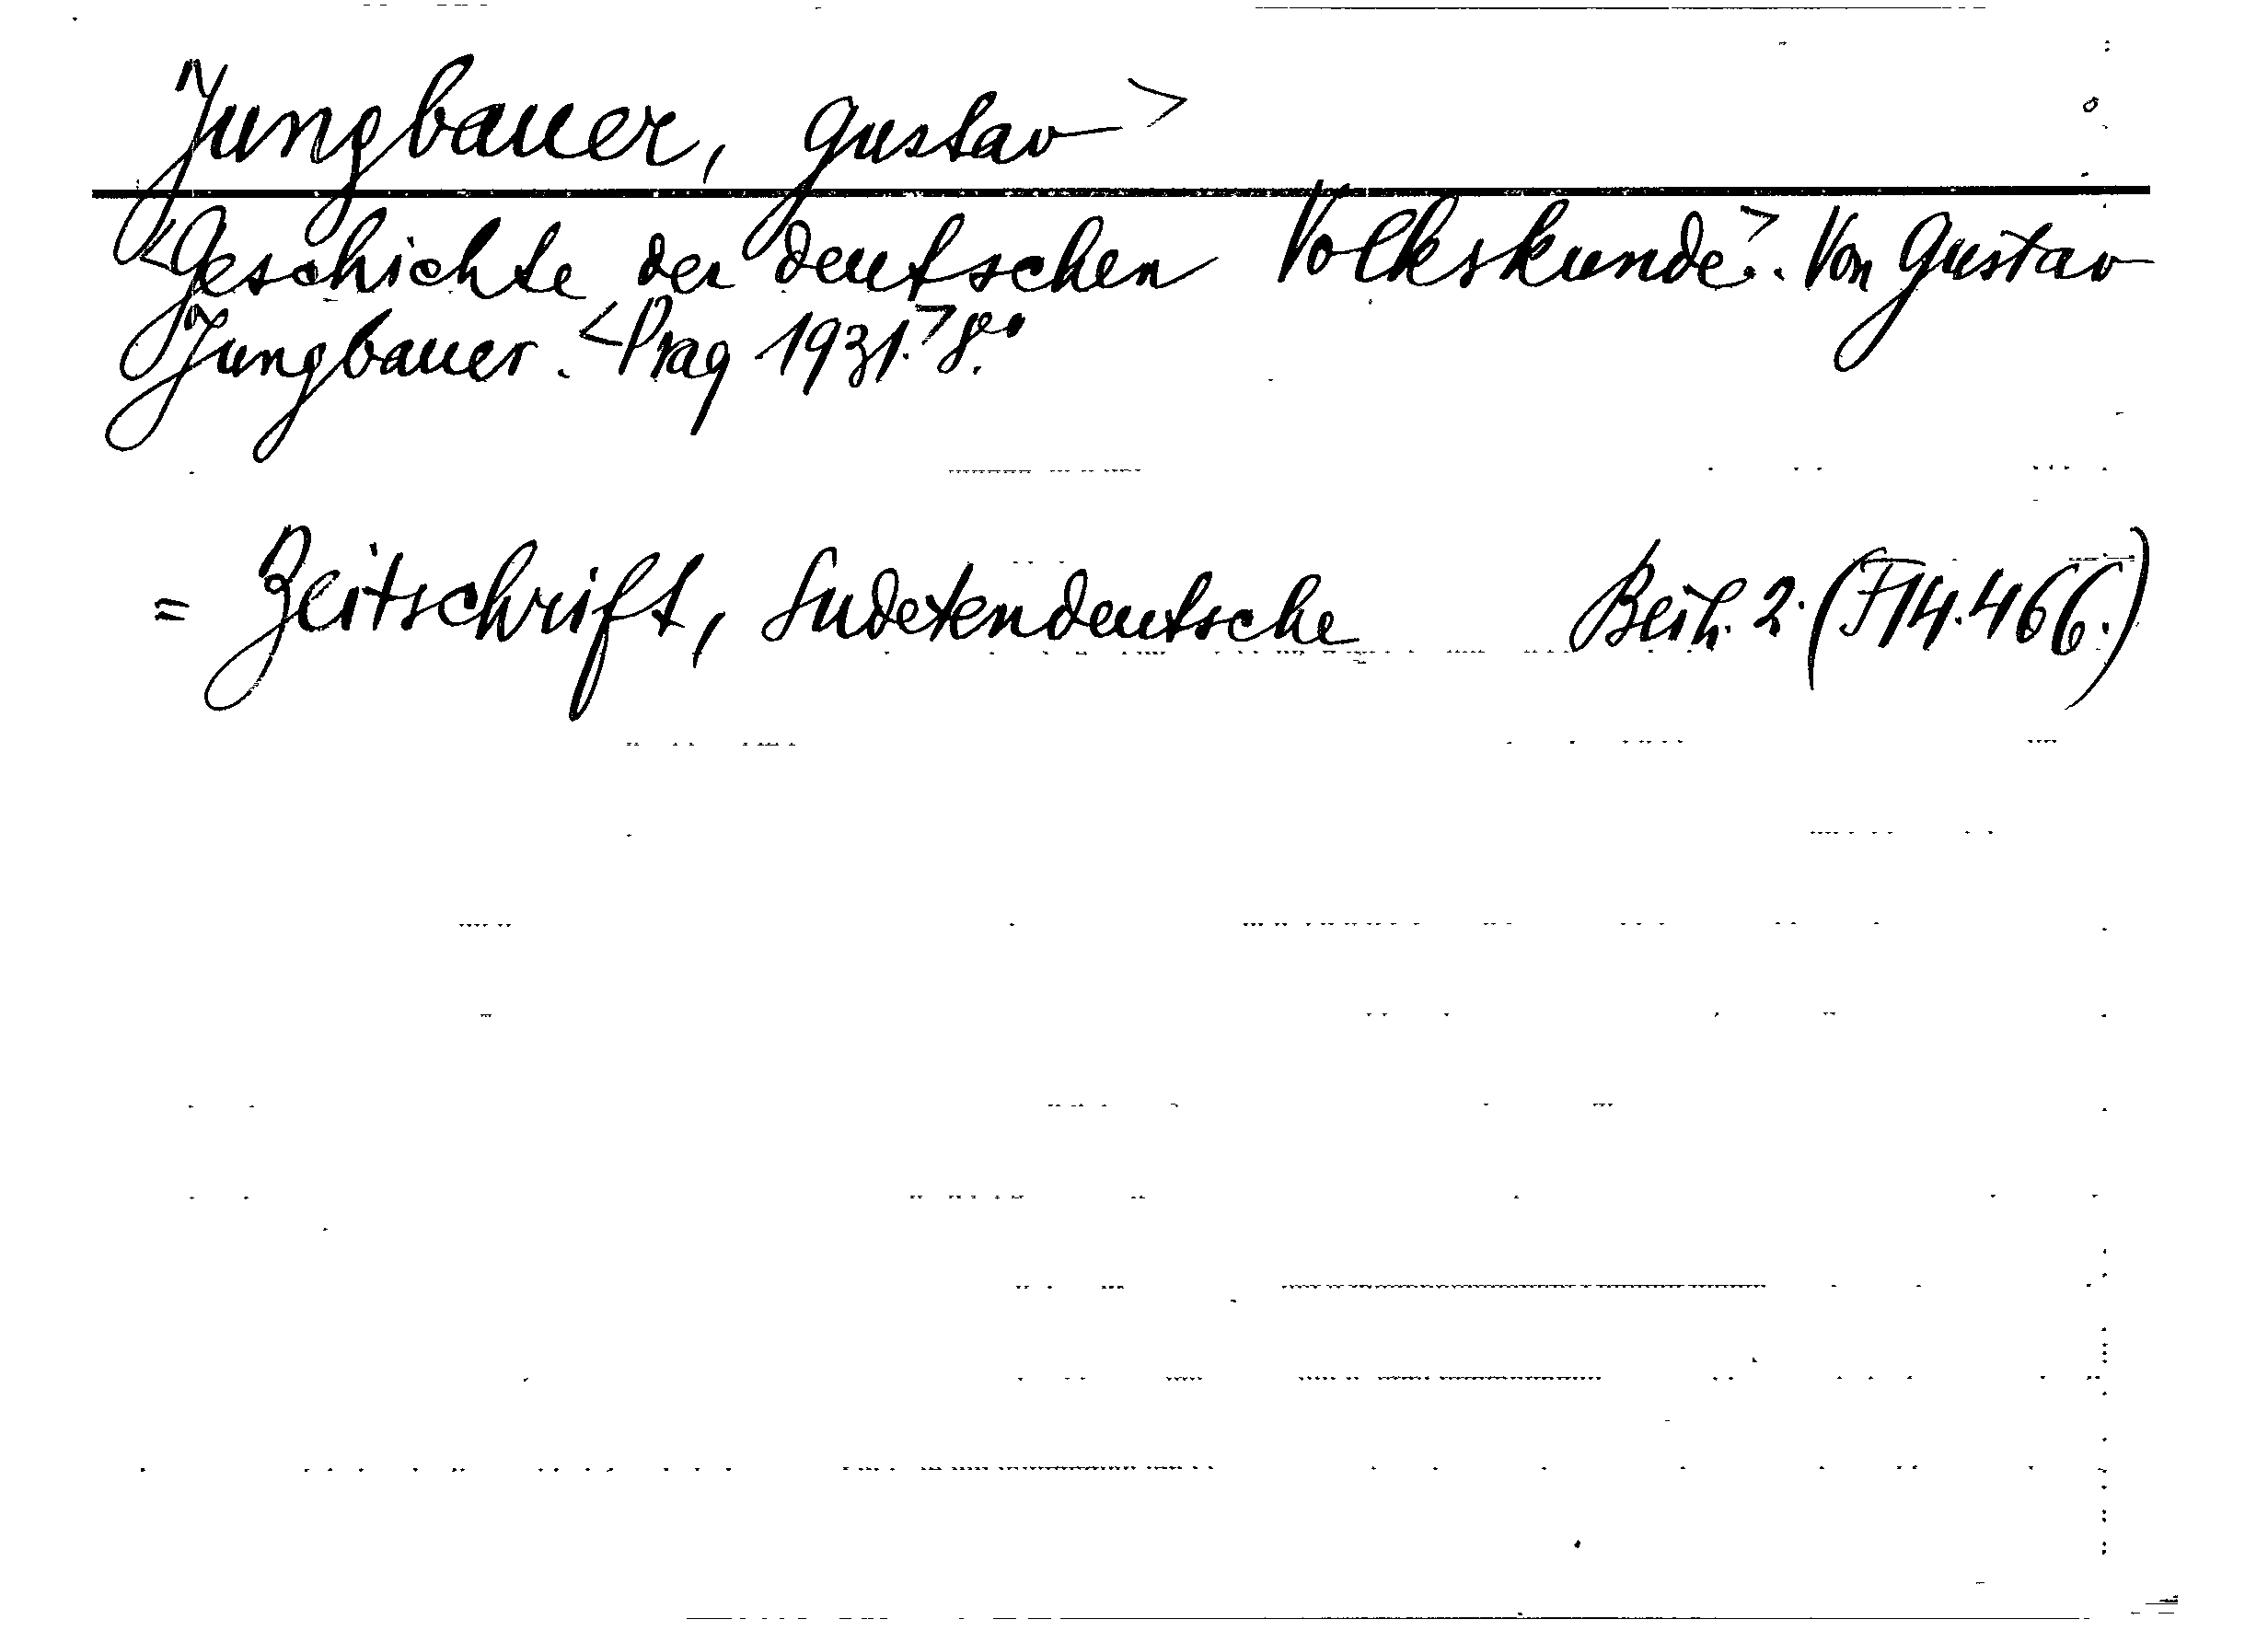 Jungbauer, Gustav>
<Geschichte der deutschen Volkskunde>. Von Gustav
Jungbauer. <Prag 1931.> 8°.
= Zeitschrift, Sudetendeutsche Beih. 2. (F14.466.)